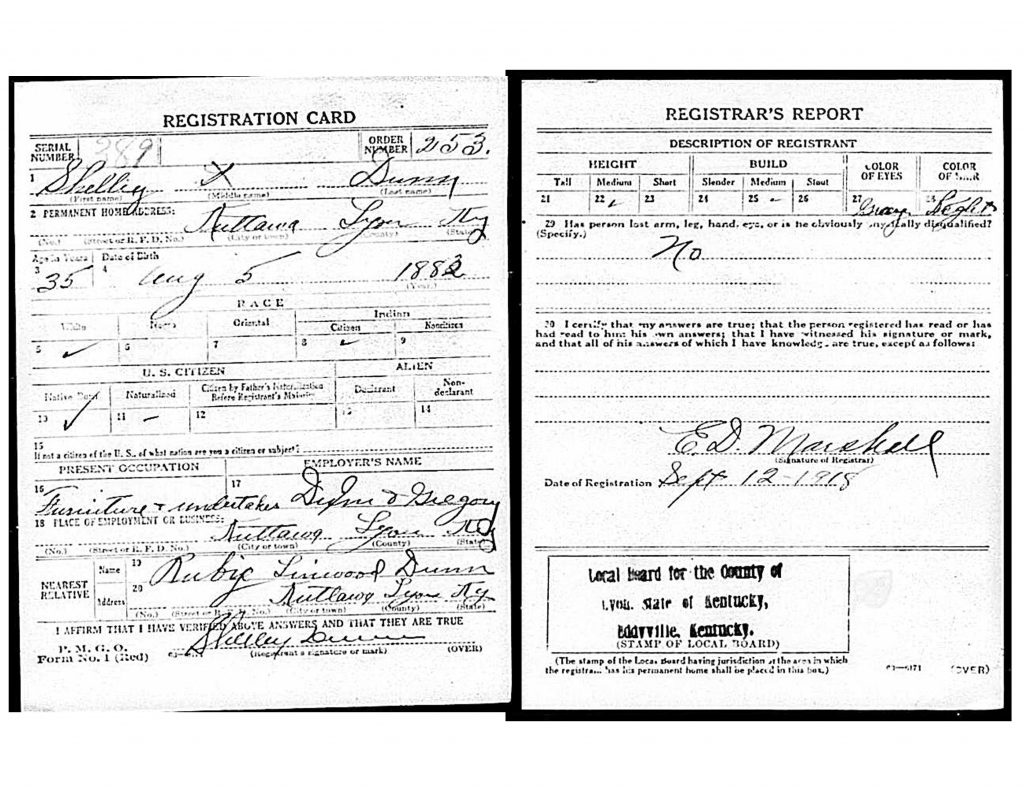 REGISTRATION CARD
SERIAL NUMBER 289 ORDER NUMBER 253.
1 Shelley X Dunn
(First name) (Middle name) (Last name)
2 PERMANENT HOME ADDRESS:
Kuttawa Lyon Ky
(No.) (Street or R. F. D. No.) (City or town) (County) (State)
Age in Years Date of Birth
3 35 4 Aug 5 1883
(Year.)
RACE
White Negro Oriental Indian
Citizen Noncitizen
5 ✓ 6 7 8 ✓ 9
U. S. CITIZEN ALIEN
Native Born Naturalized Citizen by Father's Naturalization Before Registrant's Majority Declarant Non-declarant
10 ✓ 11 – 12 13 14
15
If not a citizen of the U. S., of what nation are you a citizen or subject?
PRESENT OCCUPATION EMPLOYER'S NAME
16 17
Furniture + undertaker Dunn & Gregory
18 PLACE OF EMPLOYMENT OR BUSINESS:
Kuttawa Lyon Ky
(No.) (Street or R. F. D. No.) (City or town) (County) (State)
NEAREST RELATIVE
Name 19 Rubie Linwood Dunn
Address 20 Kuttawa Lyon Ky
(No.) (Street or R. F. D. No.) (City or town) (County) (State)
I AFFIRM THAT I HAVE VERIFIED ABOVE ANSWERS AND THAT THEY ARE TRUE
P. M. G. O.
Form No. 1 (Red) Shelley Dunn
(Registrant's signature or mark) (OVER)
REGISTRAR'S REPORT
DESCRIPTION OF REGISTRANT
HEIGHT BUILD COLOR OF EYES COLOR OF HAIR
Tall Medium Short Slender Medium Stout
21 22 ✓ 23 24 25 – 26 27 Gray 28 Light
29 Has person lost arm, leg, hand, eye, or is he obviously physically disqualified?
(Specify.)
No
30 I certify that my answers are true; that the person registered has read or has
had read to him his own answers; that I have witnessed his signature or mark,
and that all of his answers of which I have knowledge are true, except as follows:
E. D. Marshall
(Signature of Registrar)
Date of Registration Sept 12-1918
Local Board for the County of
Lyon, State of Kentucky,
Eddyville, Kentucky.
(STAMP OF LOCAL BOARD)
(The stamp of the Local Board having jurisdiction of the area in which
the registrant has his permanent home shall be placed in this box.)
03—6171 (OVER)